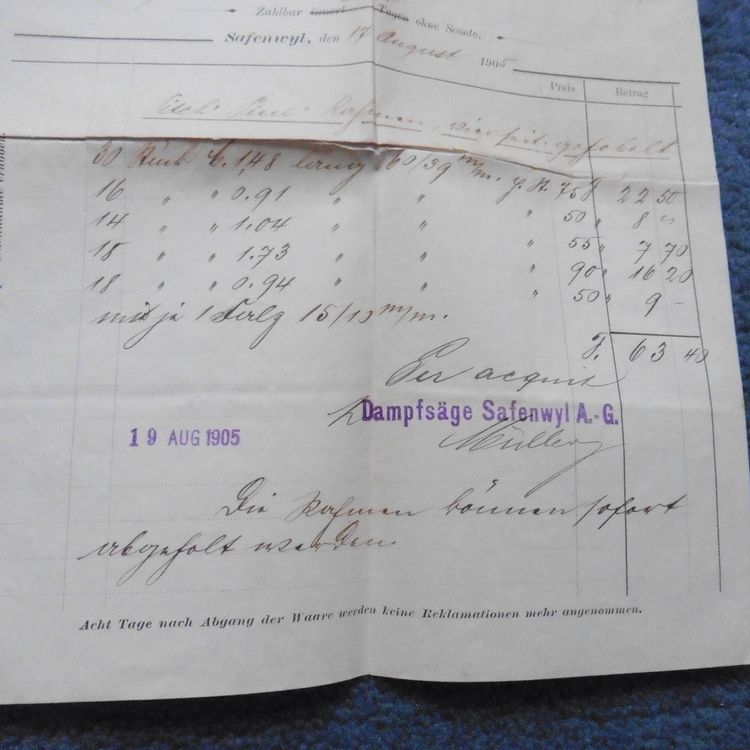 Zahlbar innert Tagen ohne Sconto.
Safenwyl, den 17 August 1905
Preis Betrag
Rahmen, vierseit. gehobelt
30 Stück 1,48 lang 60/39 m/m. p. St. 75 22 50
16 " " 0.91 " " " 50 " 8 "
14 " " 1.04 " " " 55 " 7 70
18 " " 1.73 " " " 90 " 16 20
18 " " 0.94 " " " 50 " 9 –
mit je 1 Falz 15/10 m/m.
F. 63 40
Per acquit
Dampfsäge Safenwyl A.-G.
19 AUG 1905
Müller
Die Rahmen können sofort
abgeholt werden.
Acht Tage nach Abgang der Waare werden keine Reklamationen mehr angenommen.